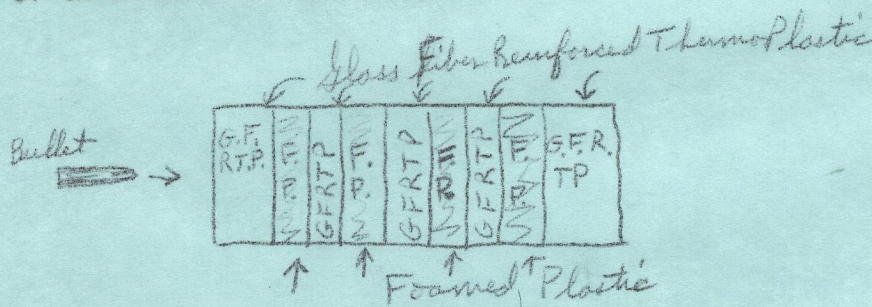 Glass Fiber Reinforced ThermoPlastic
Bullet
G.F.
R.T.P.
F.
P.
GFRTP
F.
P.
GFRTP
F
P
GFRTP
F.
P.
G.F.R.
TP
Foamed Plastic